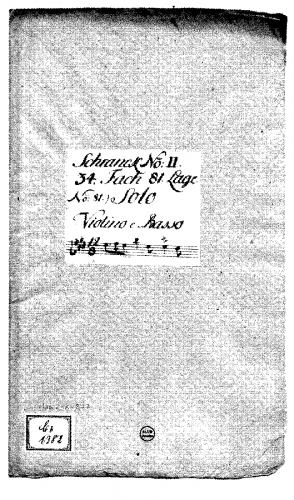 Schranck No: II.
34. Fach 81. Lage
No: 81.) Solo
Violino e Basso
1382
SLUB